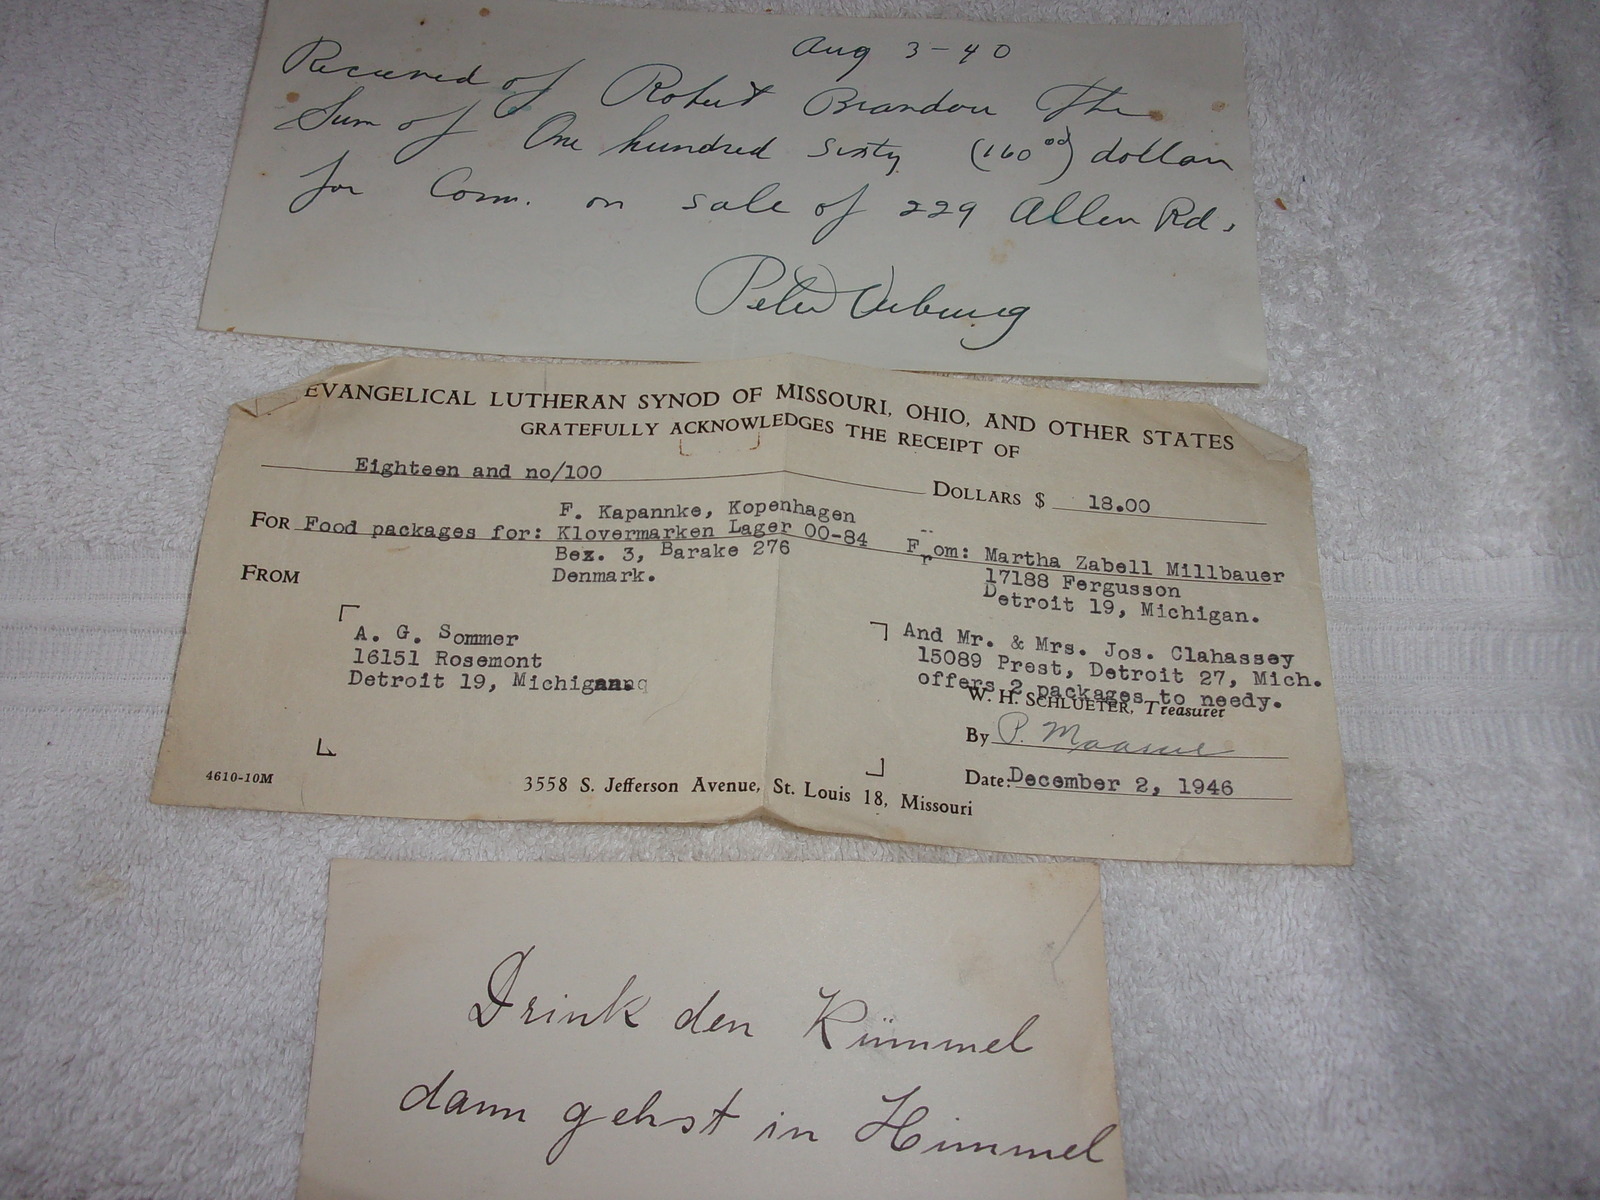 Aug 3-40
Received of Robert Brandon The
Sum of One hundred sixty (160 00) dollars
for Comm. on sale of 229 Allen Rd,
Peter
EVANGELICAL LUTHERAN SYNOD OF MISSOURI, OHIO, AND OTHER STATES
GRATEFULLY ACKNOWLEDGES THE RECEIPT OF
Eighteen and no/100 DOLLARS $ 18.00
F. Kapannke, Kopenhagen
FOR Food packages for: Klovermarken Lager 00-84 From: Martha Zabell Millbauer
Bez. 3, Barake 276 17188 Fergusson
FROM Denmark. Detroit 19, Michigan.
A. G. Sommer And Mr. & Mrs. Jos. Clahassey
16151 Rosemont 15089 Prest, Detroit 27, Mich.
Detroit 19, Michigan. offers 2 packages to needy.
W. H. SCHLUETER, Treasurer
By P.
4610-10M 3558 S. Jefferson Avenue, St. Louis 18, Missouri Date: December 2, 1946
Drink den Kümmel
dann gehst in Himmel